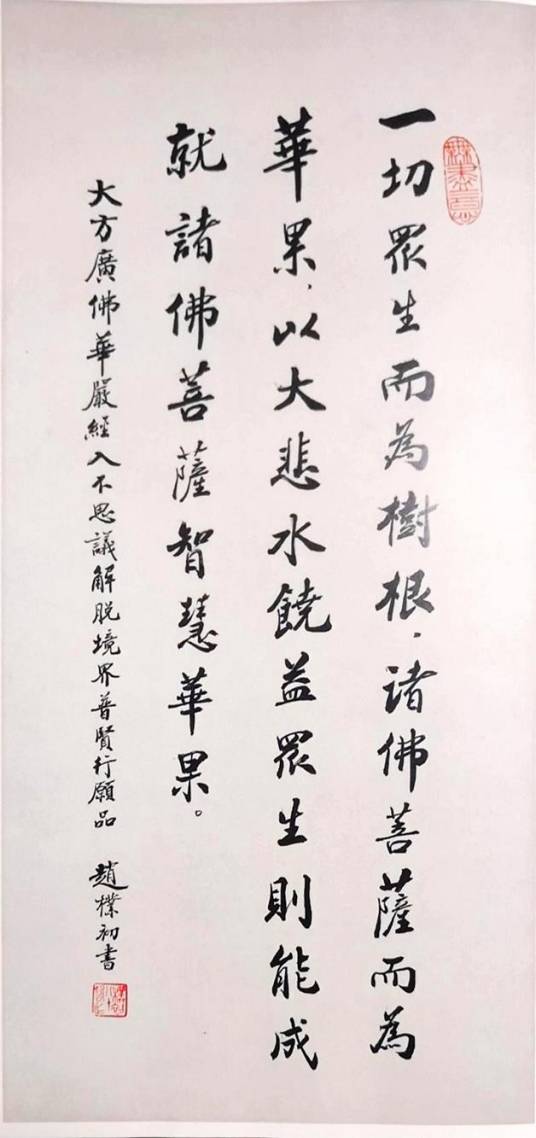 一切眾生而為樹根，諸佛菩薩而為
華果，以大悲水饒益眾生則能成
就諸佛菩薩智慧華果。
大方廣佛華嚴經入不思議解脫境界普賢行願品　趙樸初書